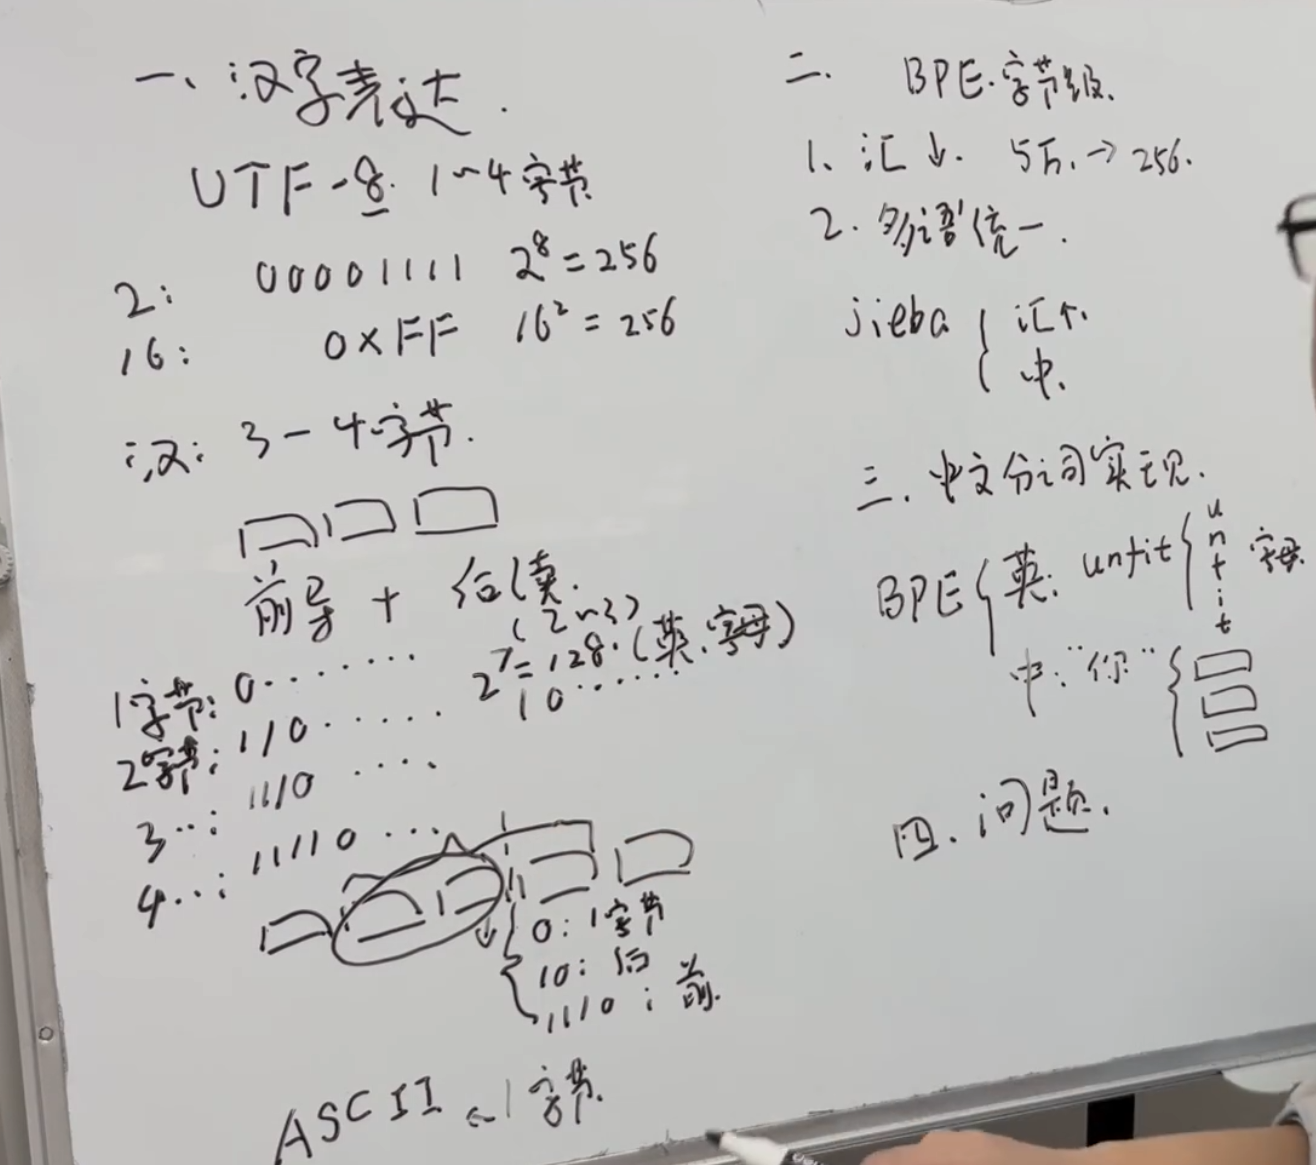 一、汉字表达.
UTF-8. 1~4字节
2: 00001111 2⁸=256
16: 0xFF 16²=256
汉: 3-4字节.
前导 + 后续.
(2~3)
1字节: 0······ 2⁷=128.(英.字母)
2字节: 110······ 10······
3··: 1110 ····
4··: 11110 ···
0: 1字节
10: 后
1110: 前.
ASCII ~1字节.
二. BPE.字节级.
1. 汇↓. 5万.→256.
2. 多语统一.
jieba { 汇↑.
中.
三. 中文分词实现.
BPE { 英: unfit { u n f i t 字母.
中: "你" {
四. 问题.